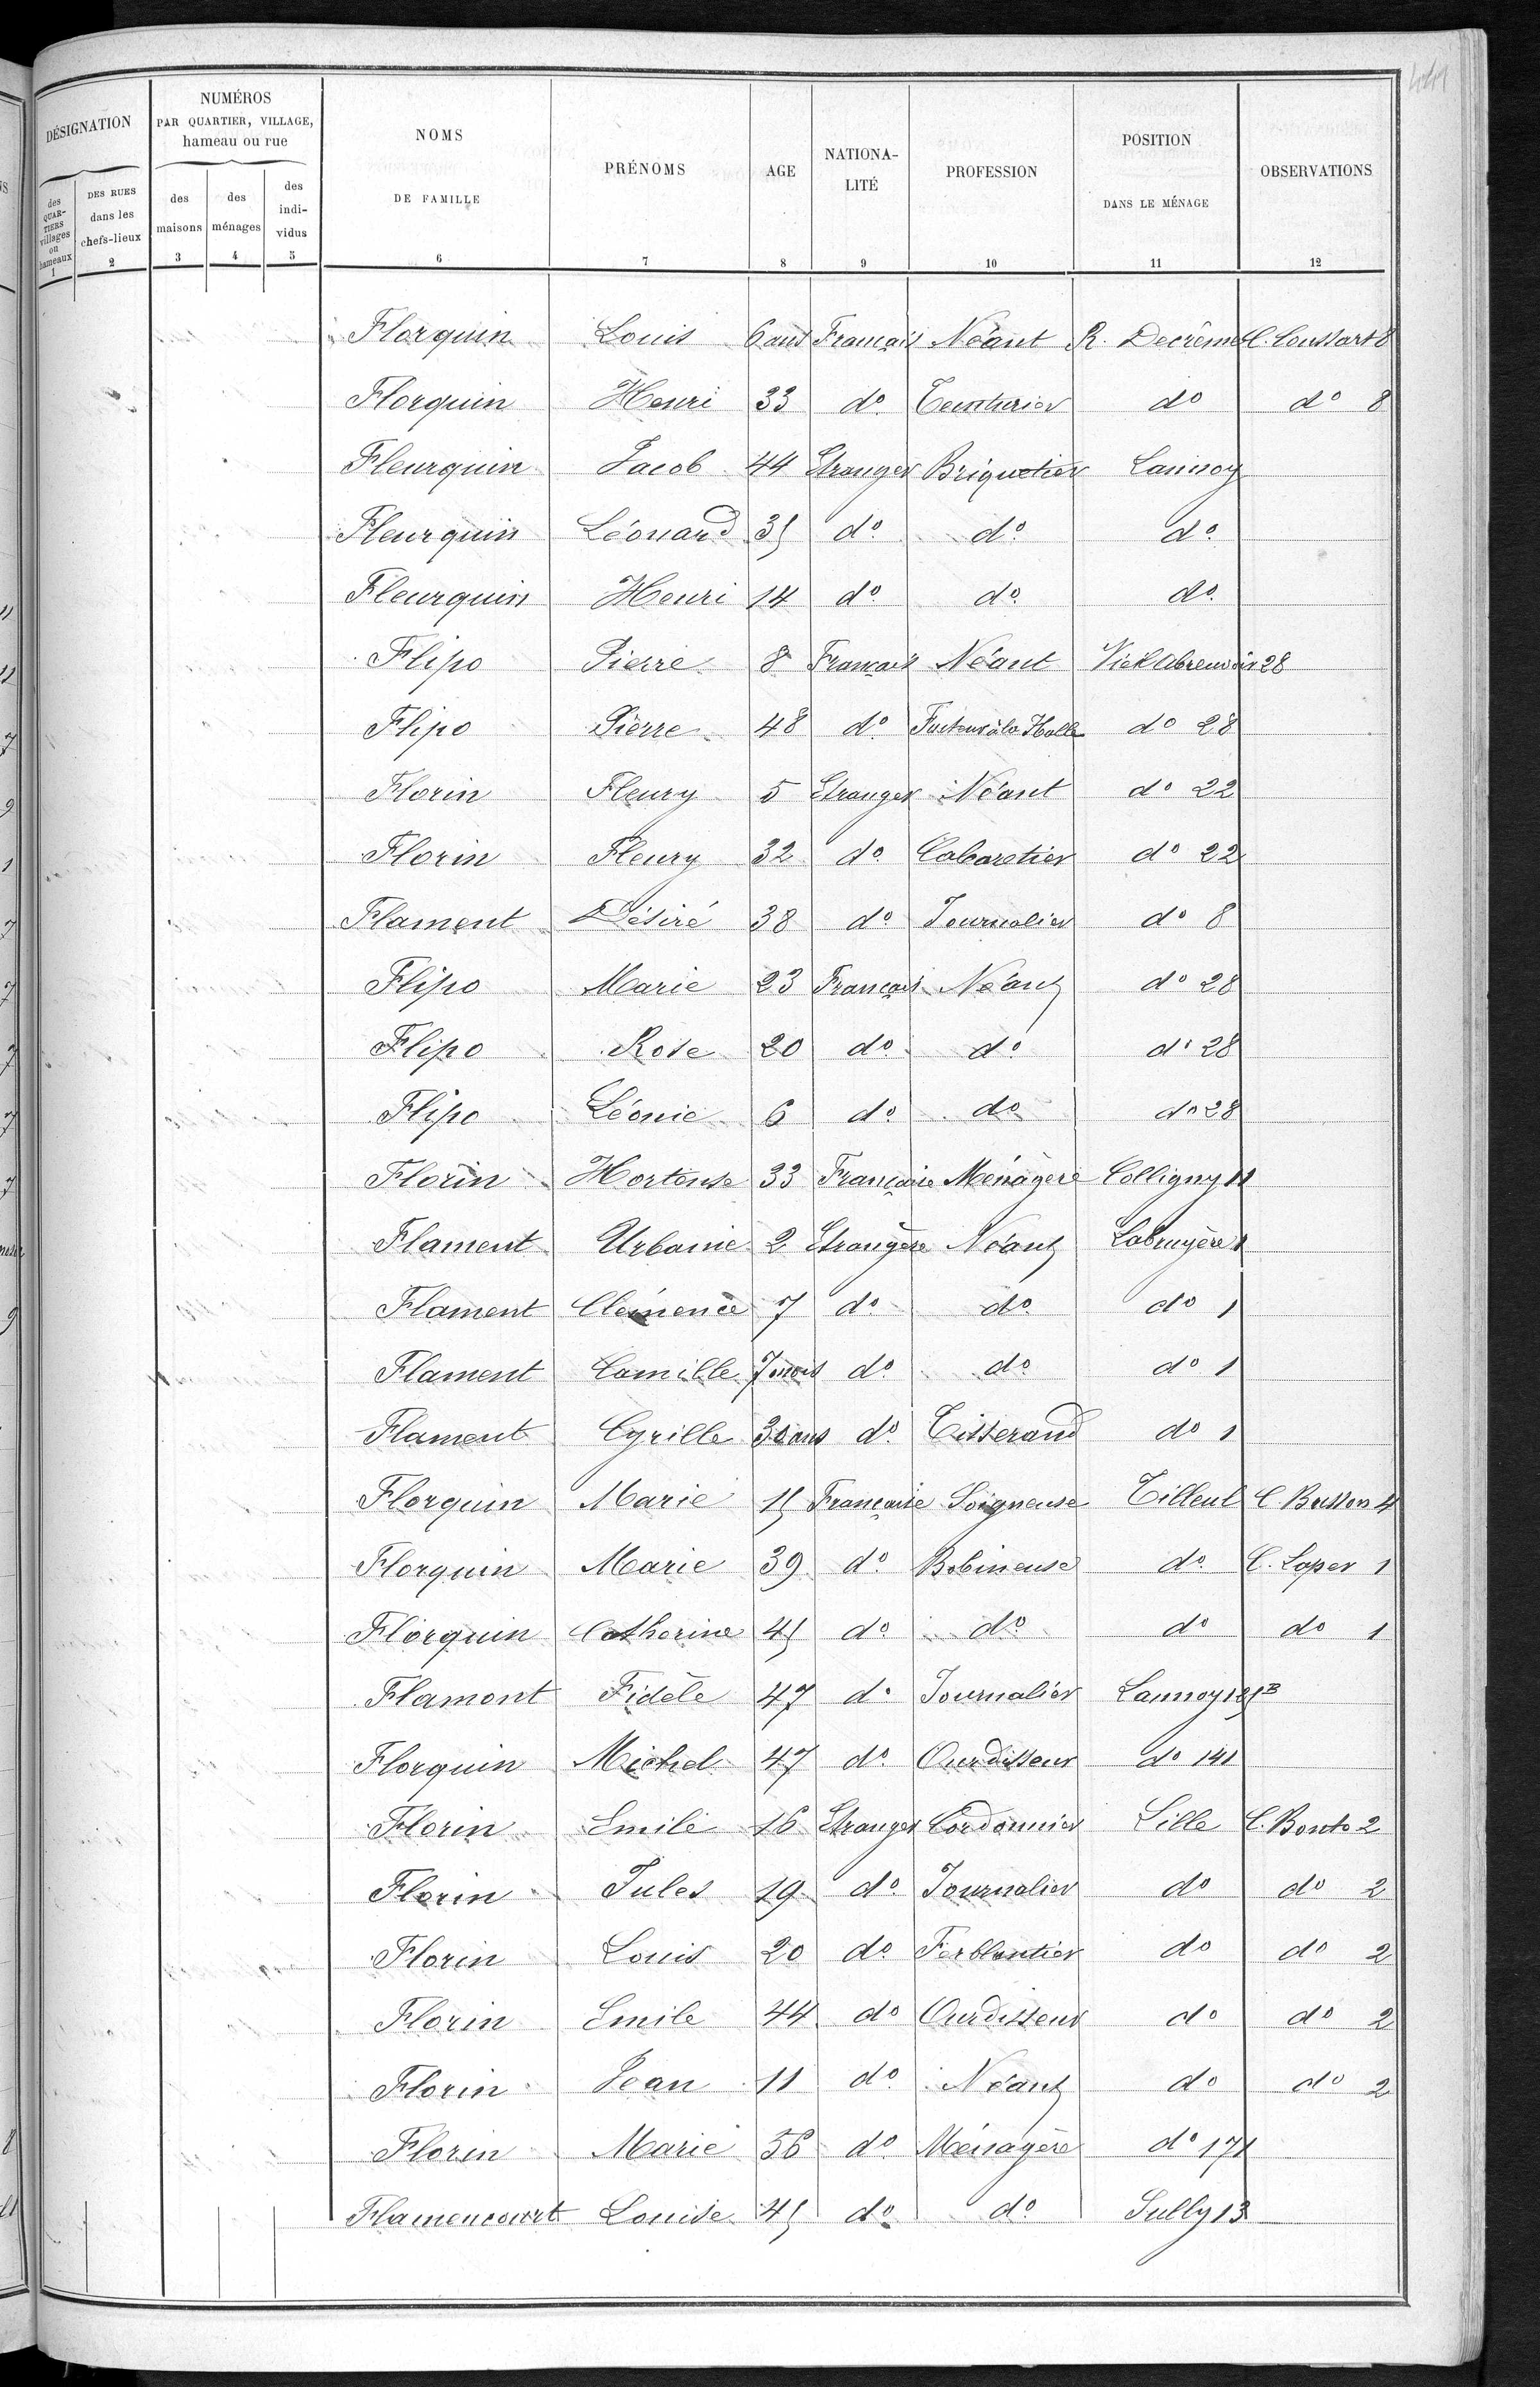 441
DÉSIGNATION
NUMÉROS
PAR QUARTIER, VILLAGE,
hameau ou rue
NOMS
DE FAMILLE
PRÉNOMS
AGE
NATIONA-
LITÉ
PROFESSION
POSITION
DANS LE MÉNAGE
OBSERVATIONS
des QUAR-TIERS villages ou hameaux
DES RUES dans les chefs-lieux
des maisons
des ménages
des indi-vidus
1 2 3 4 5 6 7 8 9 10 11 12
Florquin Louis 6 ans Français Néant R. Decrême C. Coussart 8
Florquin Henri 33 do Teinturier do do 8
Fleurquin Jacob 44 Etranger Briquetier Lannoy
Fleurquin Léonard 35 do do do
Fleurquin Henri 14 do do do
Flipo Pierre 8 Français Néant Vieil Abreuvoir 28
Flipo Pierre 48 do Facteur à la Halle do 28
Florin Fleury 5 Etranger Néant do 22
Florin Fleury 32 do Cabaretier do 22
Flament Désiré 38 do Journalier do 8
Flipo Marie 23 Français Néant do 28
Flipo Rose 20 do do do 28
Flipo Léonie 6 do do do 28
Florin Hortense 33 Française Ménagère Colligny 11
Flament Urbanie 2 Etrangère Néant Labruyère 1
Flament Clémence 7 do do do 1
Flament Camille 7 mois do do do 1
Flament Cyrille 30 ans do Tisserand do 1
Florquin Marie 15 Française Soigneuse Tilleul C. Busson 4
Florquin Marie 39 do Bobineuse do C. Loper 1
Florquin Catherine 45 do do do do 1
Flamont Fidèle 47 do Journalier Lannoy 125B
Florquin Michel 47 do Ourdisseur do 141
Florin Emile 16 Etranger Cordonnier Lille C. Bonte 2
Florin Jules 19 do Journalier do do 2
Florin Louis 20 do Ferblantier do do 2
Florin Emile 44 do Ourdisseur do do 2
Florin Jean 11 do Néant do do 2
Florin Marie 56 do Ménagère do 171
Flamencourt Louise 45 do do Sully 13